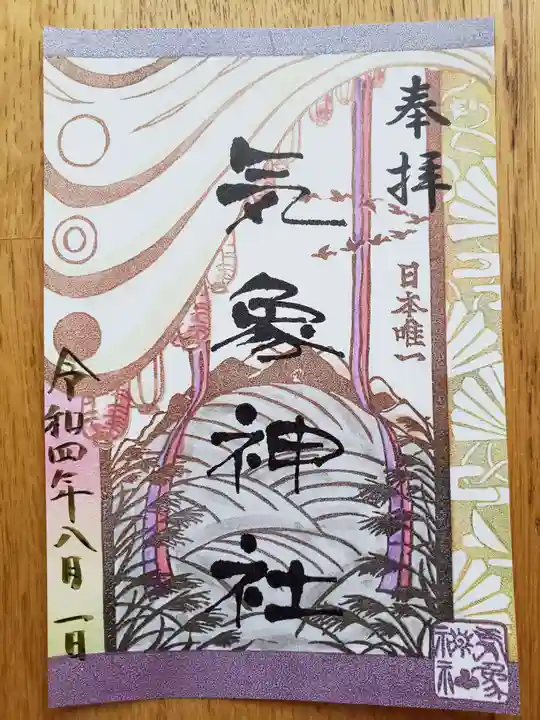 奉拝
日本唯一
気象神社
令和四年八月一日
気象
神社